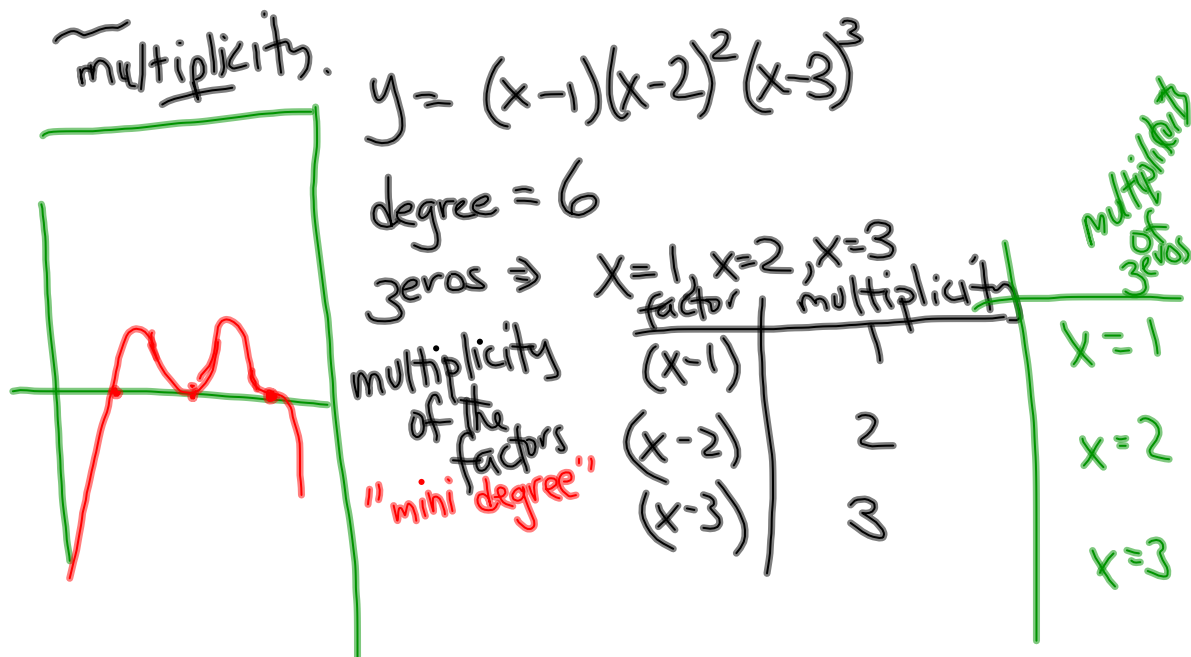 multiplicity.
y = (x-1)(x-2)²(x-3)³
degree = 6
zeros ⇒ x=1, x=2, x=3
multiplicity
of the
factors
"mini degree"
factor multiplicity
(x-1) 1
(x-2) 2
(x-3) 3
multiplicity
of
zeros
x = 1
x = 2
x = 3